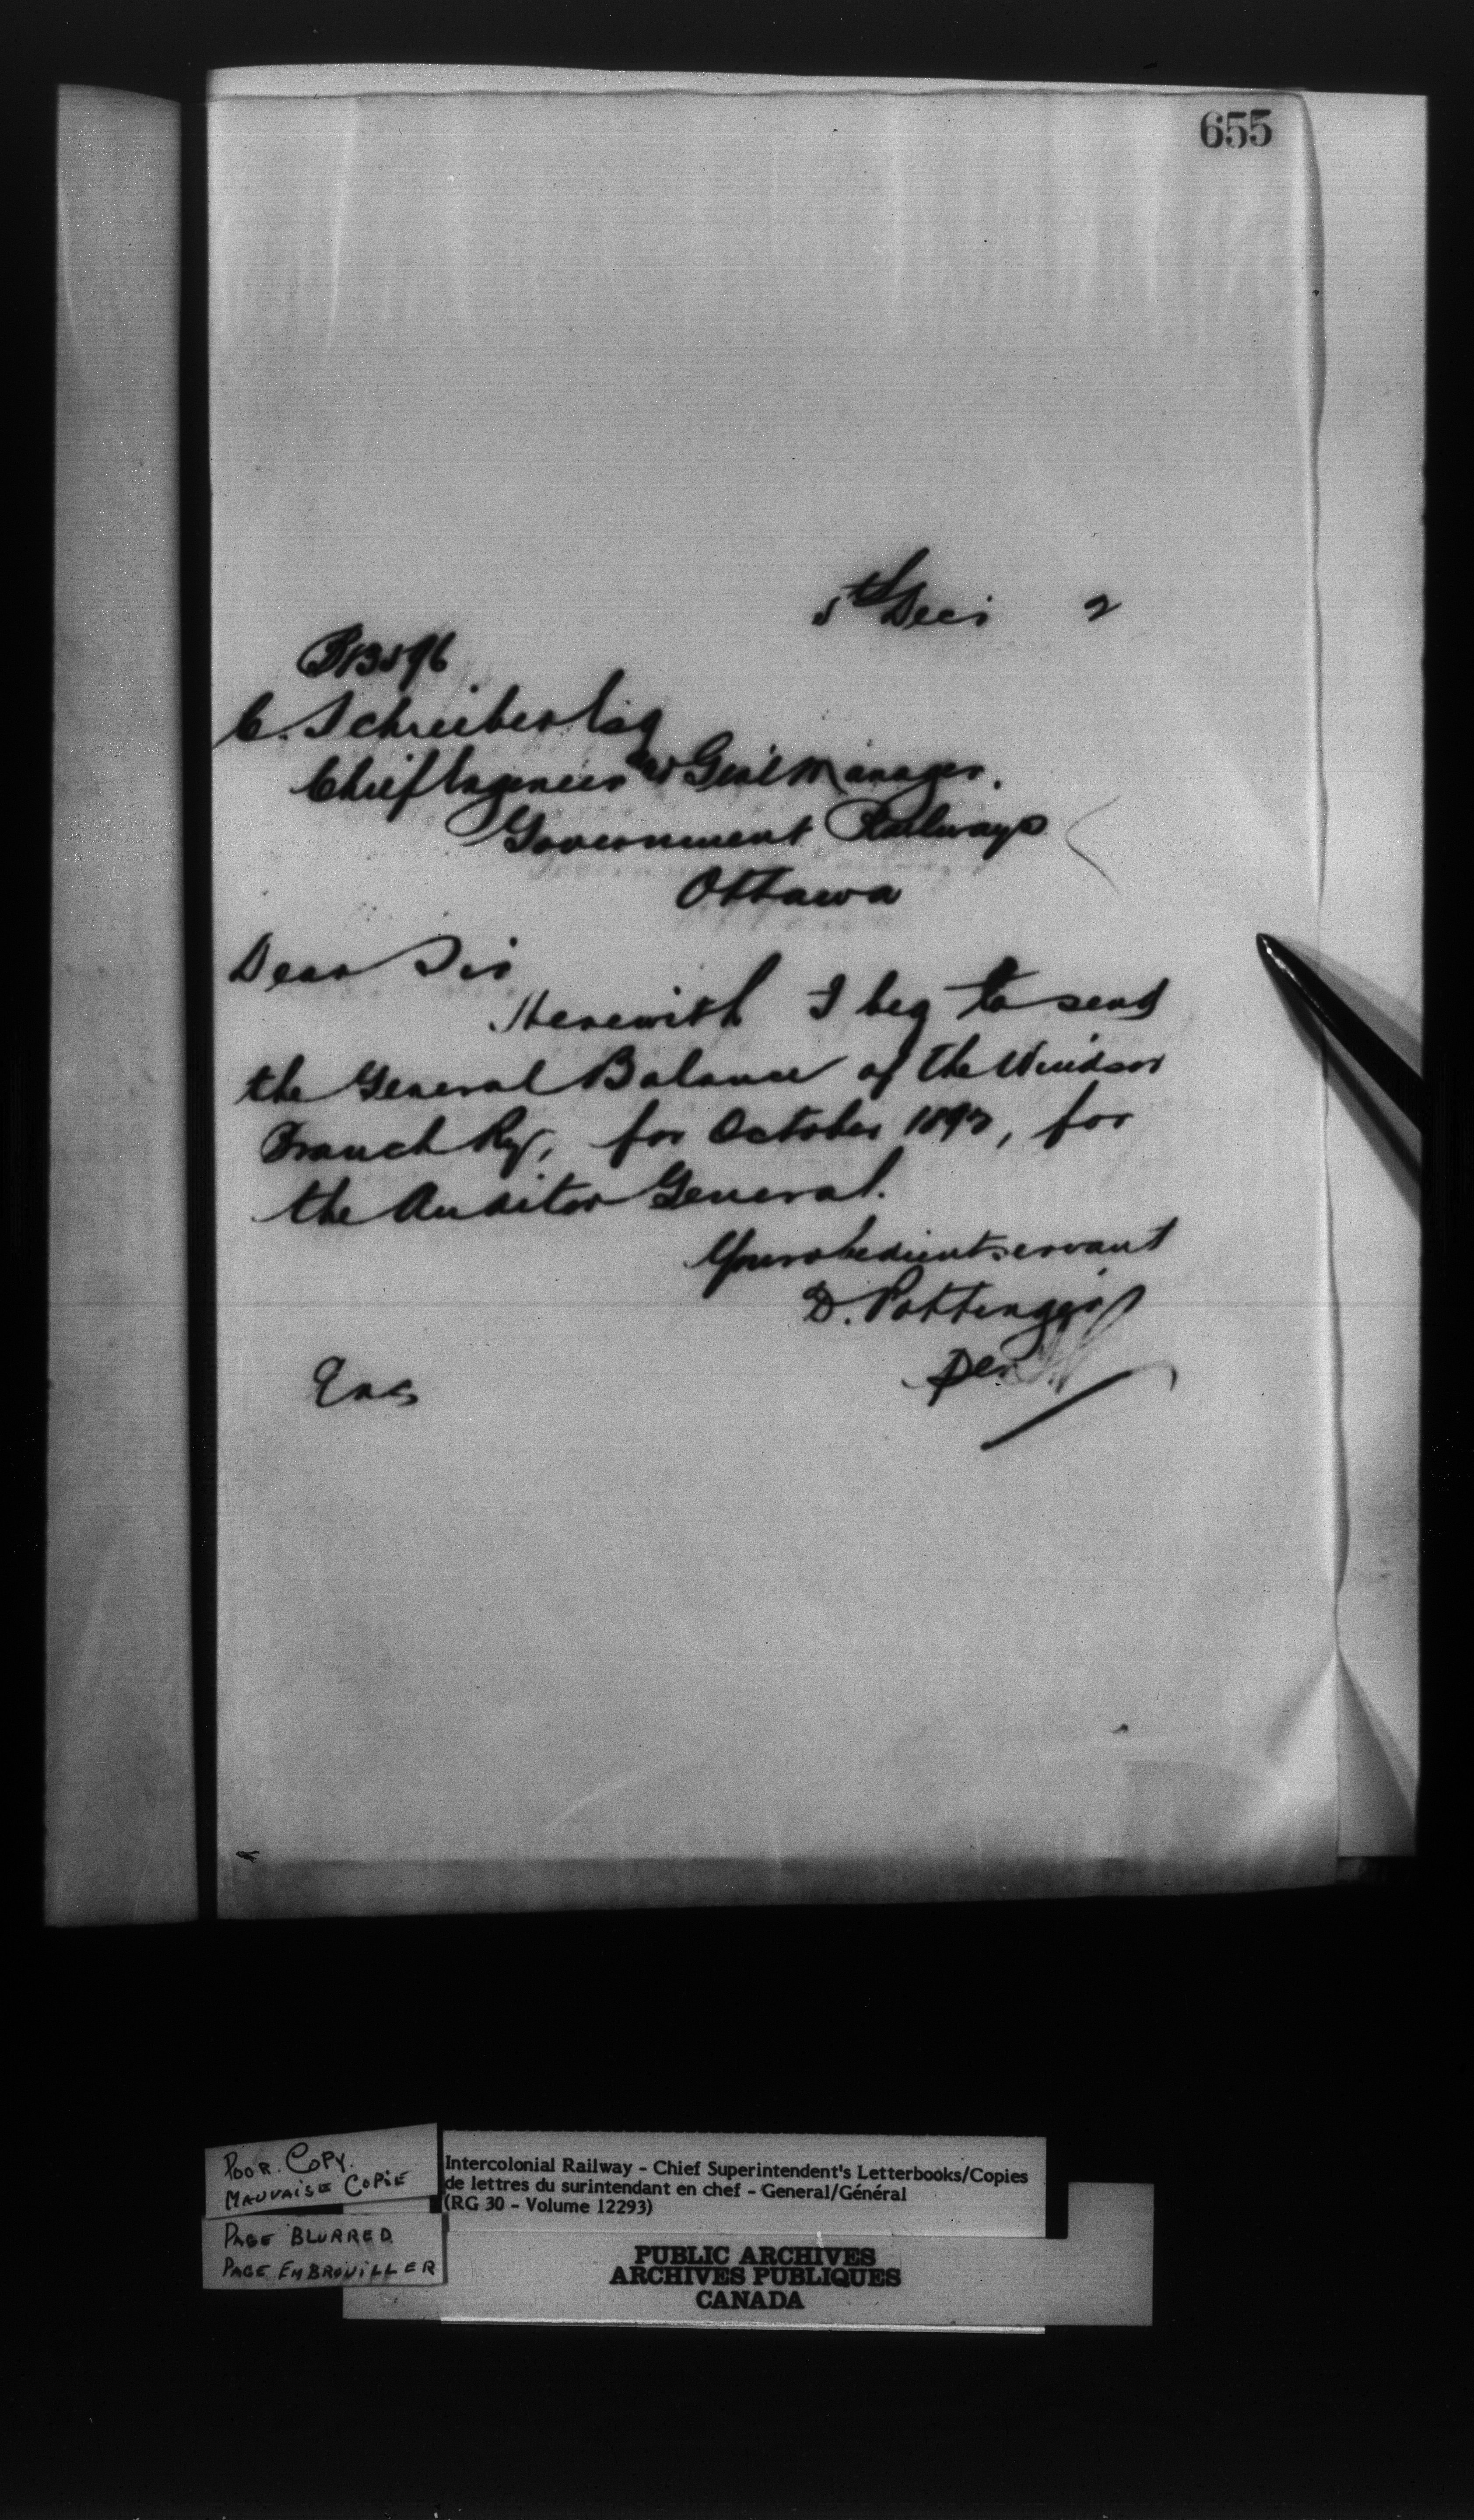 655
5th Decr 2
C. Schreiber Esq
Chief Engineer and Genl Manager.
Government Railways
Ottawa
Dear Sir
Herewith I beg to send
the General Balance of the Windsor
Branch Ry, for October 1892, for
the Auditor General.
Your obedient servant
D. Pottinger
Per
Enc
POOR. COPY.
MAUVAISE COPiE
PAGE BLURRED
PAGE EMBROUiLLER
Intercolonial Railway - Chief Superintendent's Letterbooks/Copies
de lettres du surintendant en chef - General/Général
(RG 30 - Volume 12293)
PUBLIC ARCHIVES
ARCHIVES PUBLIQUES
CANADA